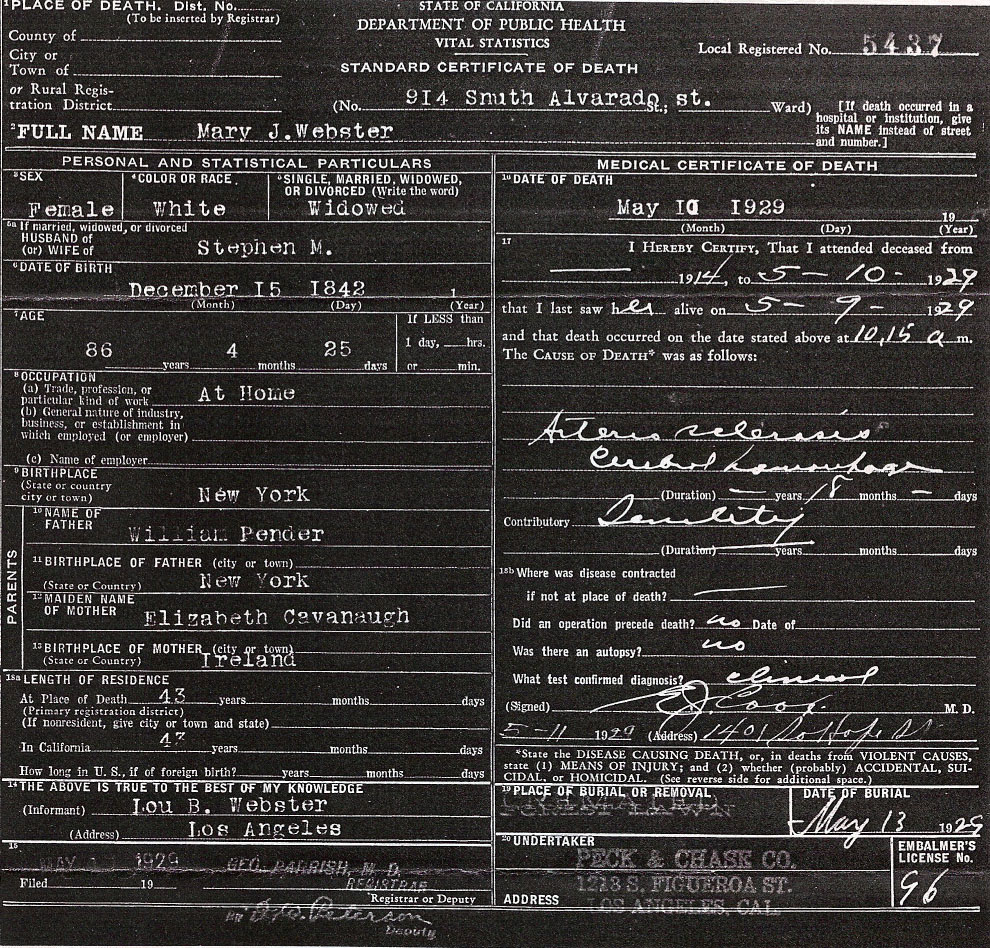 ¹PLACE OF DEATH. Dist. No.
(To be inserted by Registrar)
County of
City or
Town of
or Rural Regis-
tration District
STATE OF CALIFORNIA
DEPARTMENT OF PUBLIC HEALTH
VITAL STATISTICS
STANDARD CERTIFICATE OF DEATH
Local Registered No. 5437
(No. 9I4 Snuth Alvarado st. St.; Ward)
[If death occurred in a
hospital or institution, give
its NAME instead of street
and number.]
²FULL NAME Mary J.Webster
PERSONAL AND STATISTICAL PARTICULARS
³SEX
Female
⁴COLOR OR RACE
White
⁵SINGLE, MARRIED, WIDOWED,
OR DIVORCED (Write the word)
Widowed
5a If married, widowed, or divorced
HUSBAND of
(or) WIFE of Stephen M.
⁶DATE OF BIRTH
December I5 I842 1
(Month) (Day) (Year)
⁷AGE
86 years 4 months 25 days
If LESS than
1 day, hrs.
or min.
⁸OCCUPATION
(a) Trade, profession, or
particular kind of work At Home
(b) General nature of industry,
business, or establishment in
which employed (or employer)
(c) Name of employer
⁹BIRTHPLACE
(State or country
city or town) New York
PARENTS
¹⁰NAME OF
FATHER William Pender
¹¹BIRTHPLACE OF FATHER (city or town)
(State or Country) New York
¹²MAIDEN NAME
OF MOTHER Elizabeth Cavanaugh
¹³BIRTHPLACE OF MOTHER (city or town)
(State or Country) Ireland
13a LENGTH OF RESIDENCE
At Place of Death 43 years months days
(Primary registration district)
(If nonresident, give city or town and state)
In California 43 years months days
How long in U. S., if of foreign birth? years months days
¹⁴THE ABOVE IS TRUE TO THE BEST OF MY KNOWLEDGE
(Informant) Lou B. Webster
(Address) Los Angeles
15
MAY 1929 GEO. PARRISH, M. D.
REGISTRAR
Filed 19
Registrar or Deputy
Peterson
Deputy
MEDICAL CERTIFICATE OF DEATH
¹⁶DATE OF DEATH
May I0 I929 19
(Month) (Day) (Year)
17 I HEREBY CERTIFY, That I attended deceased from
1914, to 5-10- 1929
that I last saw her alive on 5-9- 1929
and that death occurred on the date stated above at 10,15 a m.
The CAUSE OF DEATH* was as follows:
Arterio sclerosis
Cerebral hemorrhage
(Duration) — years 18 months — days
Contributory Senility
(Duration) years months days
18b Where was disease contracted
if not at place of death?
Did an operation precede death? no Date of
Was there an autopsy? no
What test confirmed diagnosis? clinical
(Signed) M. D.
5-11 1929 (Address) 1401 So Hope St
*State the DISEASE CAUSING DEATH, or, in deaths from VIOLENT CAUSES,
state (1) MEANS OF INJURY; and (2) whether (probably) ACCIDENTAL, SUI-
CIDAL, or HOMICIDAL. (See reverse side for additional space.)
¹⁹PLACE OF BURIAL OR REMOVAL
LAWN
DATE OF BURIAL
May 13 1929
²⁰UNDERTAKER
PECK & CHASE CO.
1213 S. FIGUEROA ST.
ADDRESS LOS ANGELES, CAL
EMBALMER'S
LICENSE No.
96